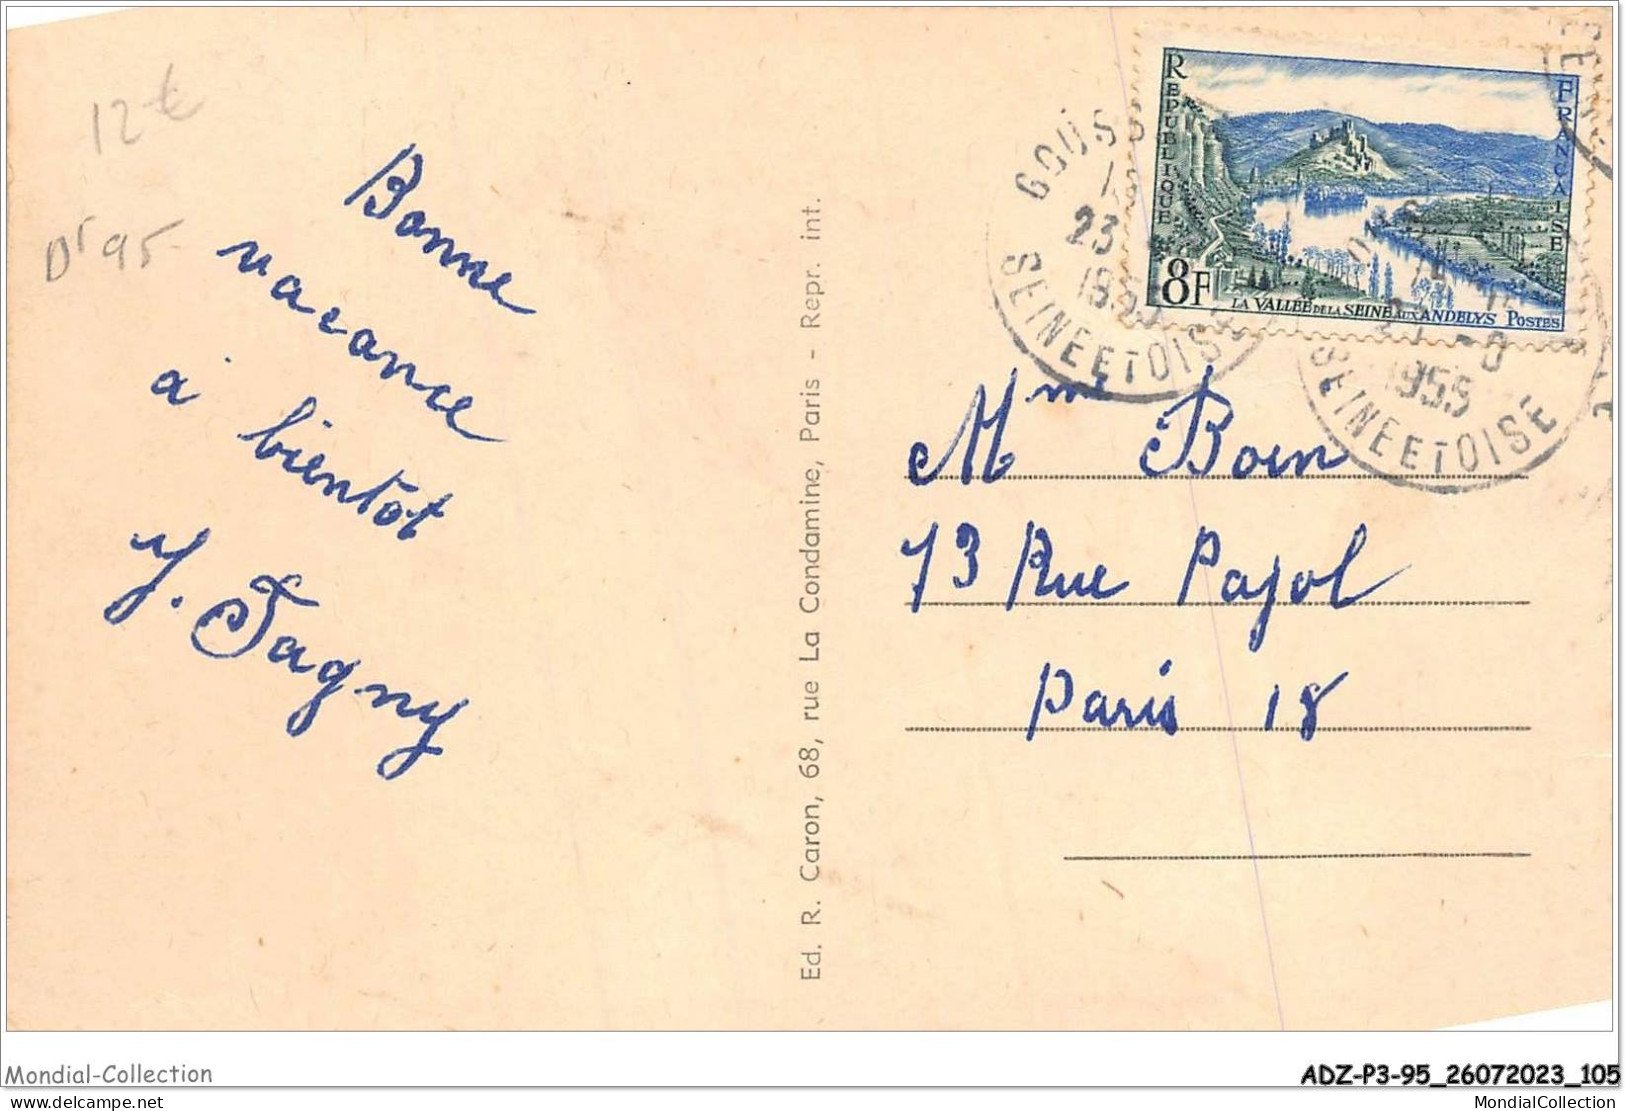 12€
Dr 95
Bonne
vacance
à bientot
Y. Fagny
Ed. R. Caron, 68, rue La Condamine, Paris - Repr. int.
REPUBLIQUE
FRANÇAISE
8F
LA VALLÉE DE LA SEINE AUX ANDELYS POSTES
GOUSS
23
SEINE ET OISE
1955
SEINE ET OISE
Mme Boen
73 Rue Pajol
Paris 18
Mondial-Collection
ADZ-P3-95_26072023_105
delcampe.net
MondialCollection